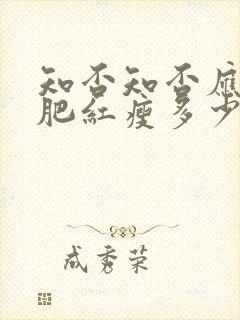 知否知否應
肥紅瘦多少
成秀荣